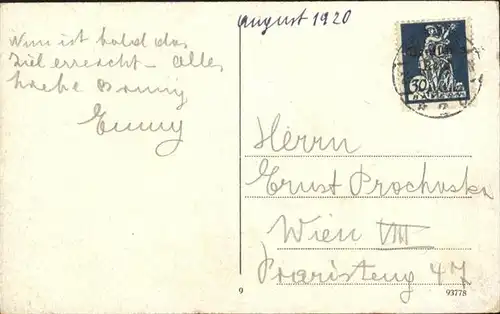 August 1920
Nun ist bald das
Ziel erreicht – alles
Liebe
Emmy
30
Herrn
Ernst Prochaska
Wien VIII
Piaristeng 47
9
93778